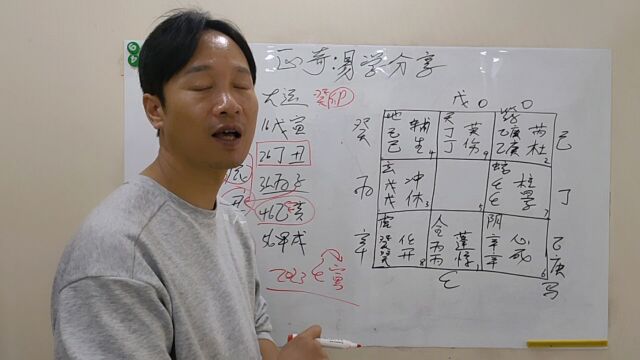 正奇易学分享
大运 癸卯
16戊寅
26丁丑
36丙子
46乙亥
56甲戌
2023
戊 〇 〇
地 天 符
癸 己 辅 丁 英 乙庚 芮 己
己 生 4 丁 伤 9 乙庚 杜 2
玄 蛇
丙 戊 冲 壬 柱 丁
戊 休 3 壬 景 7
虎 合 阴
辛 癸 任 丙 蓬 辛 心 乙
癸 开 8 丙 惊 1 辛 死 6 庚
壬 马